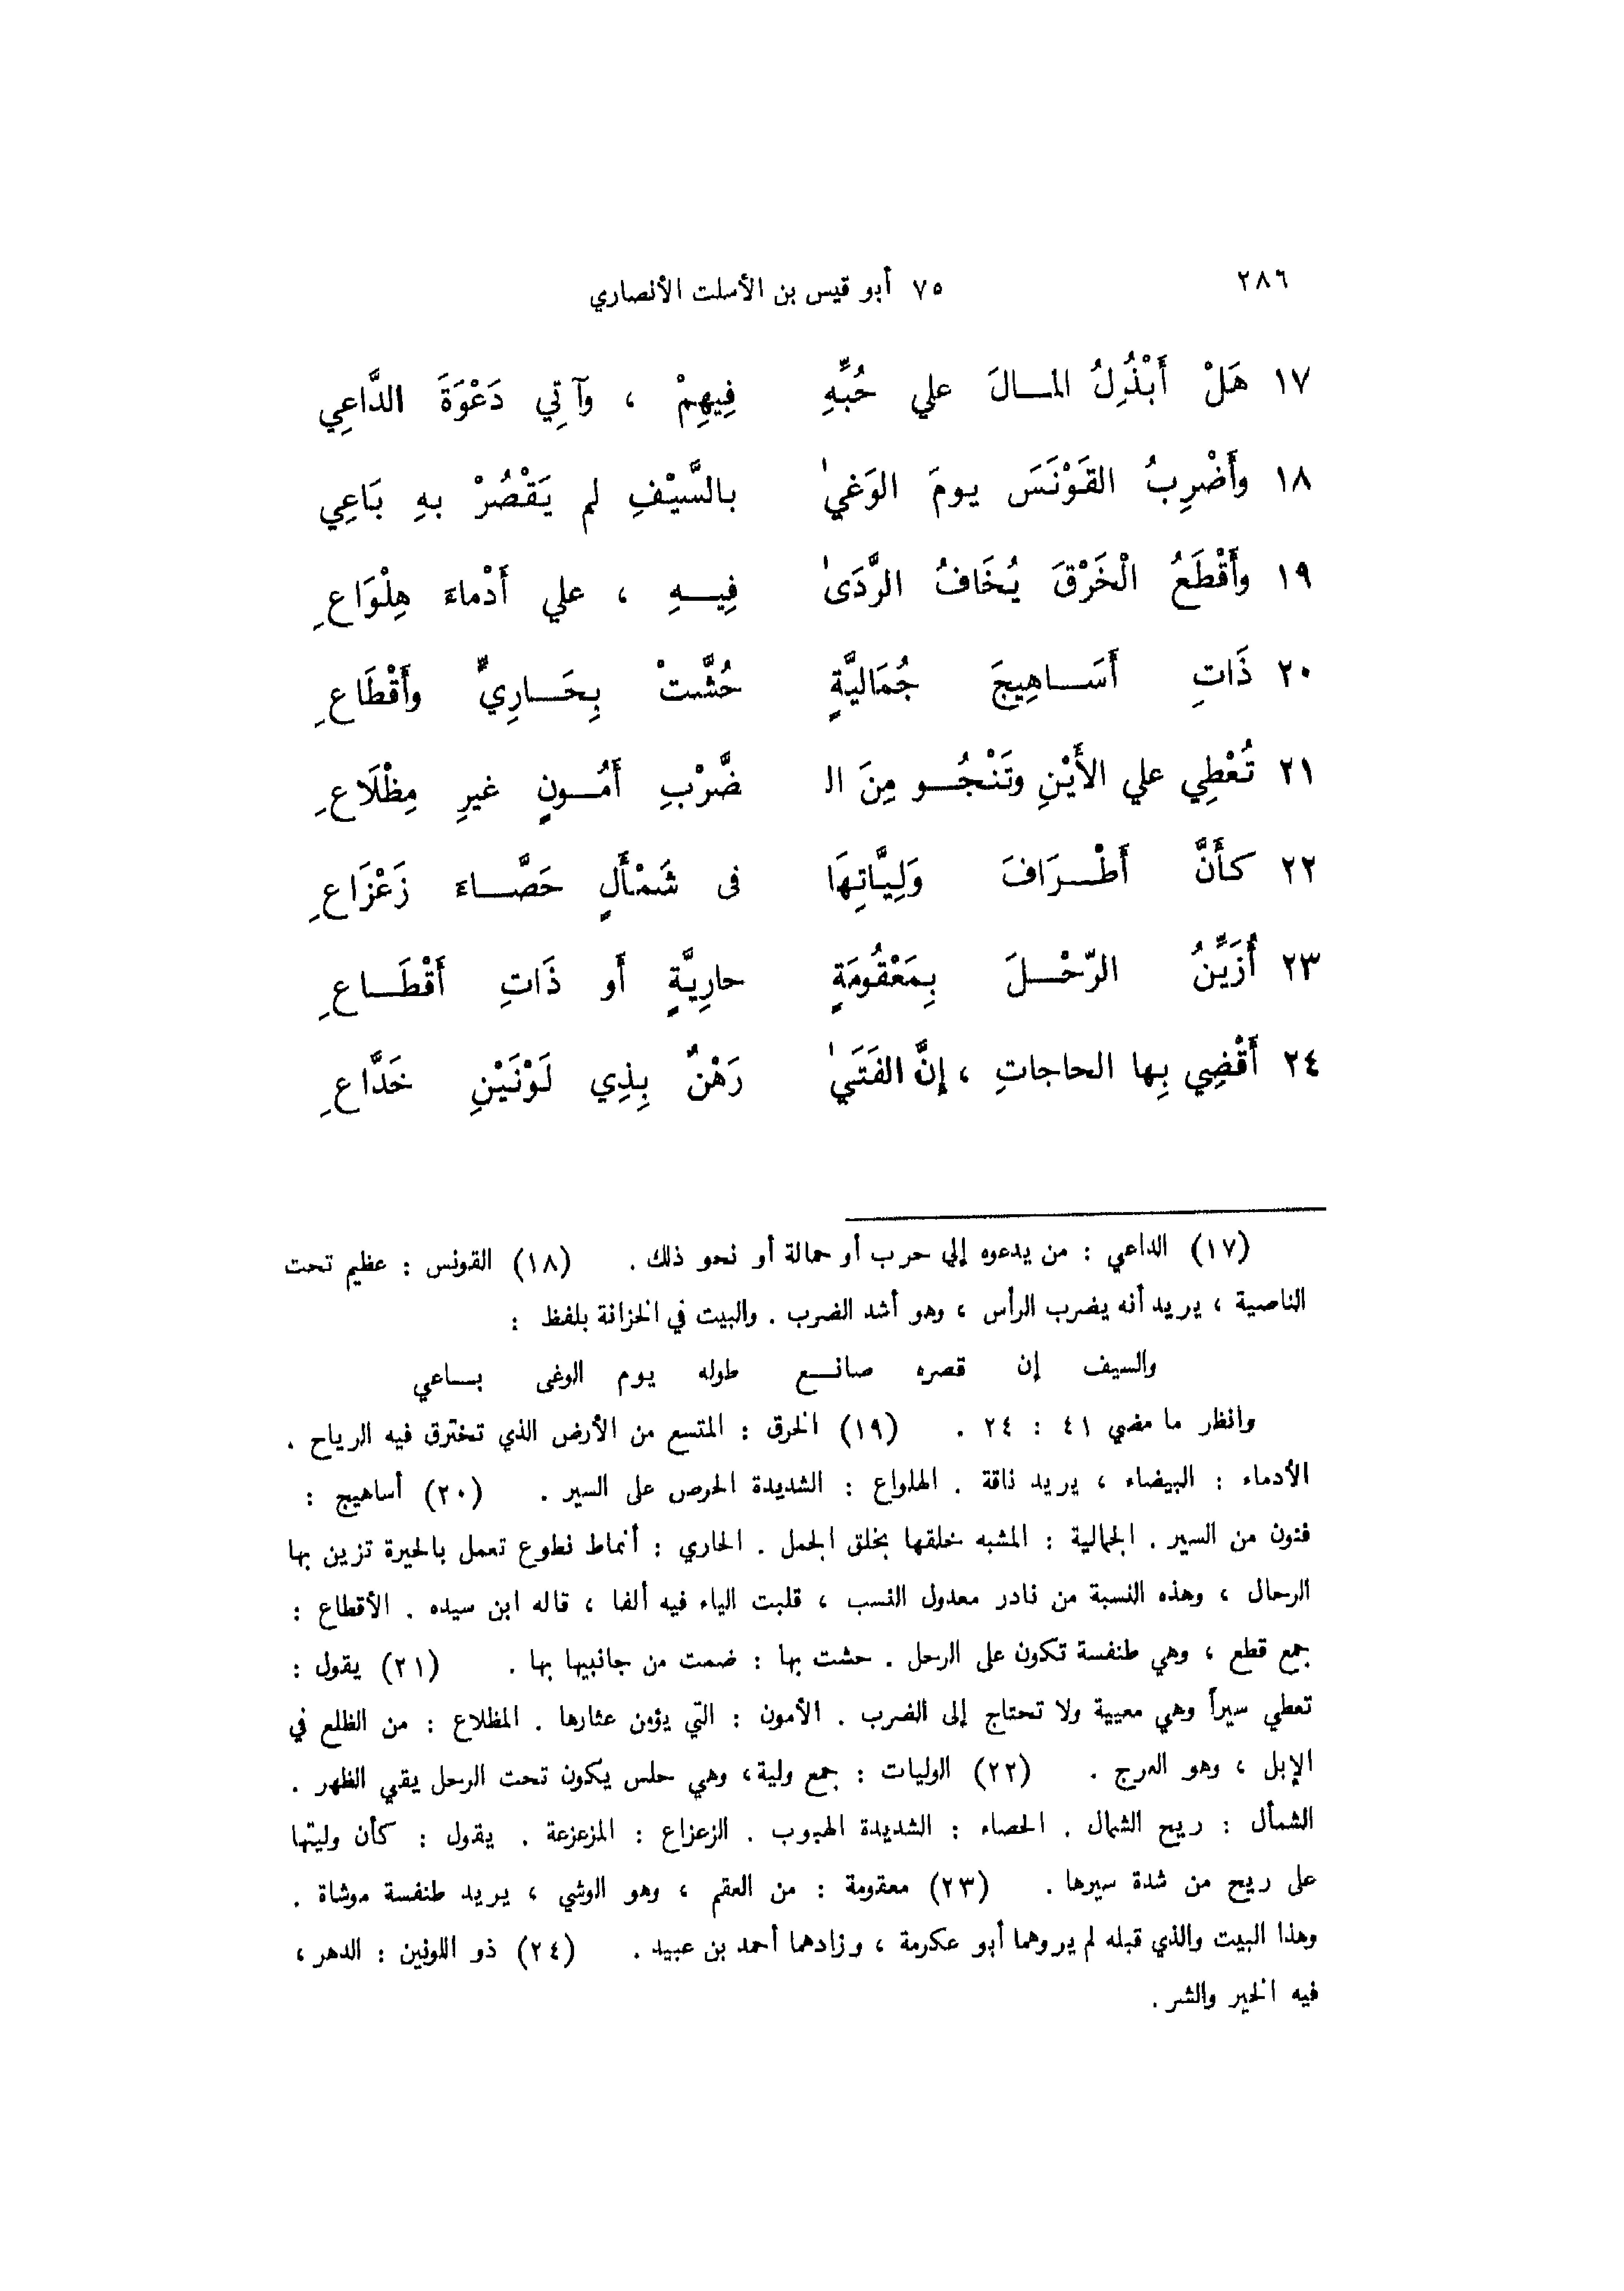 ٢٨٦
٧٥ أبو قيس بن الأسلت الأنصاري
١٧ هَلْ أَبْذُلُ المالَ علي حُبِّهِ فِيهِمْ ، وآتِي دَعْوَةَ الدَّاعِي
١٨ وأَضْرِبُ القَوْنَسَ يومَ الوَغيٰ بالسَّيْفِ لم يَقْصُرْ بهِ بَاعِي
١٩ وأَقْطَعُ الْخَرْقَ يُخَافُ الرَّدَىٰ فِيهِ ، علي أَدْماءَ هِلْوَاعِ
٢٠ ذَاتِ أَسَاهِيجَ جُمَاليَّةٍ حُشَّتْ بِحَارِيٍّ وأَقْطَاعِ
٢١ تُعْطِي علي الأَيْنِ وتَنْجُو مِنَ الـ ضَّرْبِ أَمُونٍ غيرِ مِظْلَاعِ
٢٢ كأَنَّ أَطْرَافَ وَلِيَّاتِهَا فى شَمْأَلٍ حَصَّاءَ زَعْزَاعِ
٢٣ أُزَيِّنُ الرّحْلَ بِمَعْقُومَةٍ حارِيَّةٍ أَو ذَاتِ أَقْطَاعِ
٢٤ أَقْضِي بِها الحاجاتِ ، إِنَّ الفَتَيٰ رَهْنٌ بِذِي لَوْنَيْنِ خَدَّاعِ
(١٧) الداعي : من يدعوه إلي حرب أو حمالة أو نحو ذلك . (١٨) القونس : عظيم تحت
الناصية ، يريد أنه يضرب الرأس ، وهو أشد الضرب . والبيت في الخزانة بلفظ :
والسيف إن قصره صانع طوله يوم الوغى بساعي
وانظر ما مضي ٤١ : ٢٤ . (١٩) الخرق : المتسع من الأرض الذي تخترق فيه الرياح .
الأدماء : البيضاء ، يريد ناقة . الهلواع : الشديدة الحرص على السير . (٢٠) أساهيج :
فنون من السير . الجمالية : المشبه خلقها بخلق الجمل . الحاري : أنماط نطوع تعمل بالحيرة تزين بها
الرحال ، وهذه النسبة من نادر معدول النسب ، قلبت الياء فيه ألفا ، قاله ابن سيده . الأقطاع :
جمع قطع ، وهي طنفسة تكون على الرحل . حشت بها : ضمت من جانبيها بها . (٢١) يقول :
تعطي سيراً وهي معيية ولا تحتاج إلى الضرب . الأمون : التي يؤمن عثارها . المظلاع : من الظلع في
الإبل ، وهو العرج . (٢٢) الوليات : جمع ولية، وهي حلس يكون تحت الرحل يقي الظهر .
الشمأل : ريح الشمال . الحصاء : الشديدة الهبوب . الزعزاع : المزعزعة . يقول : كأن وليتها
على ريح من شدة سيرها . (٢٣) معقومة : من العقم ، وهو الوشي ، يريد طنفسة موشاة .
وهذا البيت والذي قبله لم يروهما أبو عكرمة ، وزادهما أحمد بن عبيد . (٢٤) ذو اللونين : الدهر ،
فيه الخير والشر .